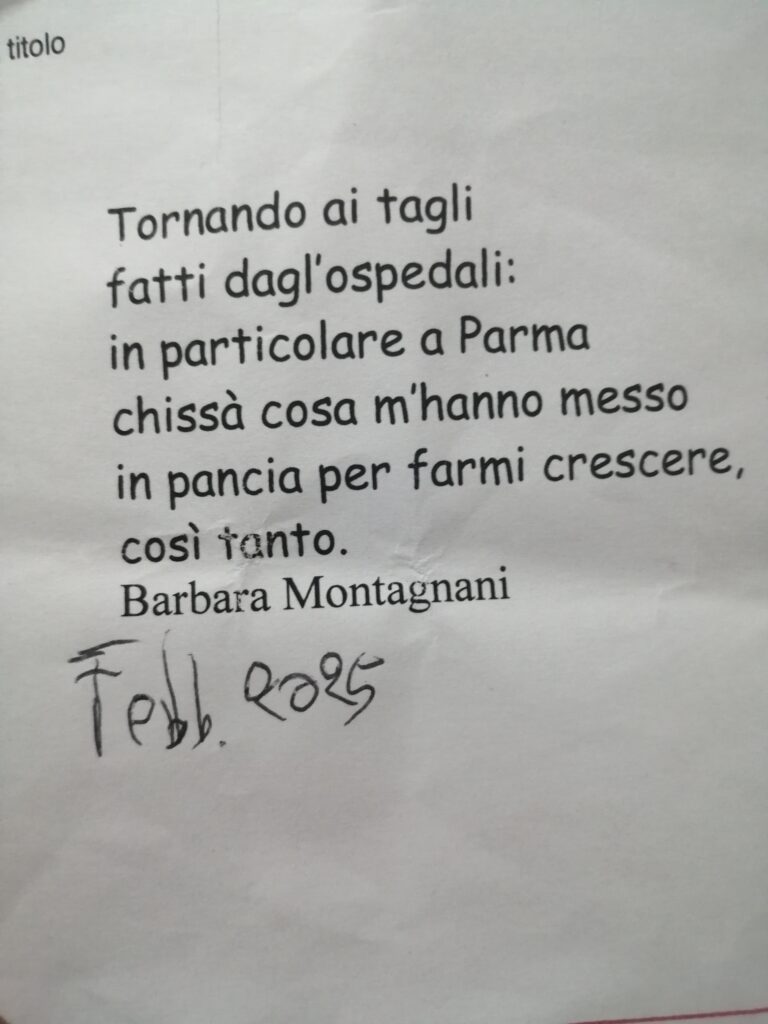 titolo
Tornando ai tagli
fatti dagl'ospedali:
in particolare a Parma
chissà cosa m'hanno messo
in pancia per farmi crescere,
così tanto.
Barbara Montagnani
Febb. 2025